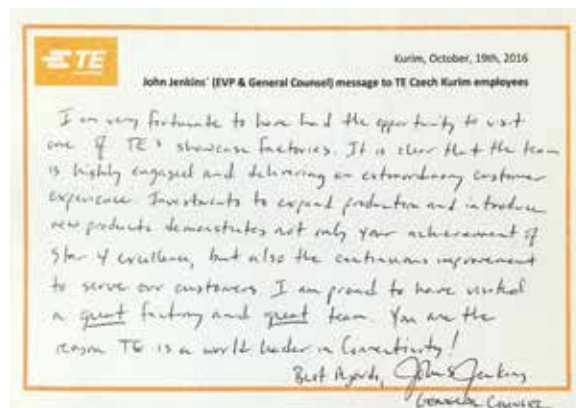 TE
Kurim, October, 19th, 2016
John Jenkins' (EVP & General Counsel) message to TE Czech Kurim employees
I am very fortunate to have had the opportunity to visit
one of TE's showcase factories. It is clear that the team
is highly engaged and delivering an extraordinary customer
experience. Investments to expand production and introduce
new products demonstrates not only your achievement of
Star 4 excellence, but also the continuous improvement
to serve our customers. I am proud to have visited
a great factory and great team. You are the
reason TE is a world leader in Connectivity!
Best Regards, John S Jenkins
General Counsel